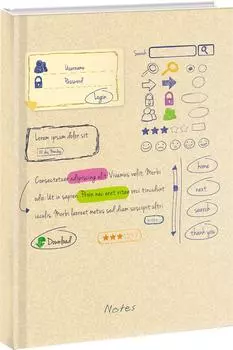 Username
Password
Login
Search
Lorem ipsum dolor sit
Consectetuer adipiscing elit Vivamus velit. Morbi
odio. Ut in sapien. Proin nec erat vitae orci tincidunt
iaculis. Morbi laoreet metus sed diam suscipit altri
Download
home
next
search
thank you
Notes